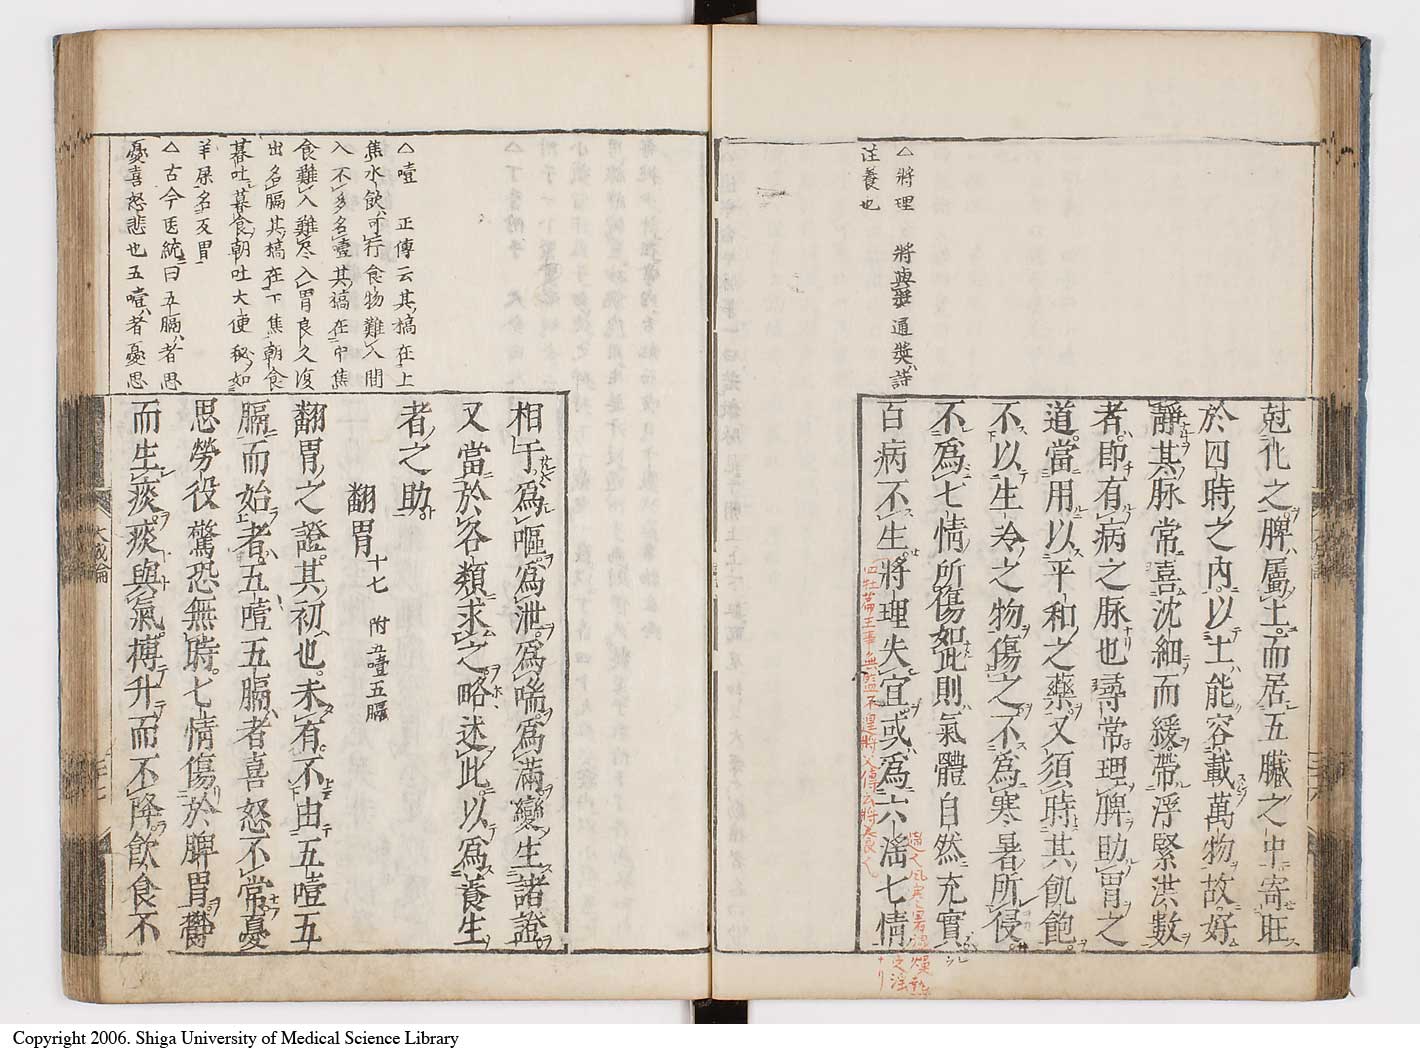 △將理　將與漿通奨詩
注養也
尅化之脾屬土而居五臟之中寄旺
於四時之內以土能容載萬物故好
靜其脉常喜沈細而緩帶浮緊洪數
者即有病之脉也尋常理脾助胃之
道當用以平和之藥又須時其飢飽
不以生冷之物傷之不爲寒暑所侵
不爲七情所傷如此則氣體自然充實
百病不生將理失宜或爲六淫七情
△噎　正傳云其槁在上
焦水飲可行食物難入間
入不多名噎其槁在中焦
食難入難尽入胃良久復
出名膈其槁在下焦朝食
暮吐暮食朝吐大便秘如
羊屎名反胃
△古今医統曰五膈者思
憂喜怒悲也五噎者憂思
相干爲嘔爲泄爲喘爲滿變生諸證
又當於各類求之略述此以爲養生
者之助
翻胃十七　附五噎五膈
翻胃之證其初也未有不由五噎五
膈而始者五噎五膈者喜怒不常憂
思勞役驚恐無時七情傷於脾胃鬱
而生痰痰與氣搏升而不降飲食不
大成論
Copyright 2006. Shiga University of Medical Science Library